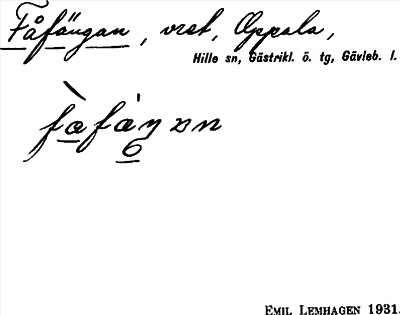 Fåfängan, vret, Oppala,
Hille sn, Gästrikl. ö. tg, Gävleb. l.
EMIL LEMHAGEN 1931.